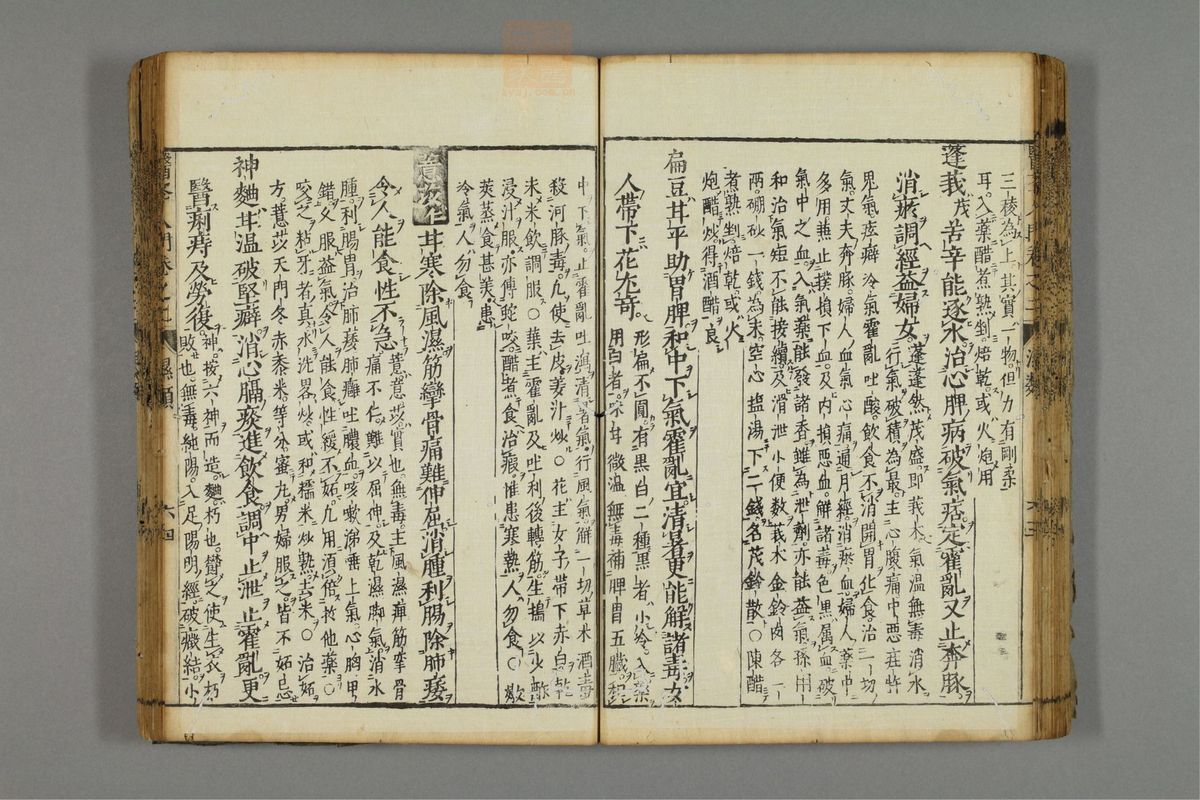 三稜為上其實一物但力有剛柔
耳入藥醋煮熟剉焙乾或火炮用
蓬莪茂苦辛能逐水治心脾病破氣痃定霍亂又止奔豚
消瘀調經益婦女蓬蓬然茂盛即莪木氣溫無毒消水
行氣破積為最主心腹痛中惡疰忤
鬼氣痃癖冷氣霍亂吐酸飲食不消開胃化食治一切
氣丈夫奔豚婦人血氣心痛通月經消瘀血婦人藥中
多用兼止撲損下血及內損惡血解諸毒色黑屬血破
氣中之血入氣藥能發諸香雖為泄劑亦能益氣孫用
和治氣短不能接續及滑泄小便數莪木金鈴肉各一
兩硼砂一錢為末空心塩湯下二錢名茂鈴散○陳醋
煮熟剉焙乾或火
炮醋炒得酒醋良
扁豆甘平助胃脾和中下氣霍亂宜清暑更能解諸毒女
人帶下花尤奇
形扁不圓有黑白二種黑者小冷入藥
用白者味甘微溫無毒補脾胃五臟和
中下氣止霍亂吐瀉清暑氣行風氣解一切草木酒毒
殺河豚毒凡使去皮姜汁炒○花主女子帶下赤白乾
末米飲調服○葉主霍亂及吐利後轉筋生搗以少酢
浸汁服亦傅蛇咬醋煮食治瘕惟患寒熱人勿食○嫩
莢蒸食甚美患
冷氣人勿食
薏苡仁甘寒除風濕筋攣骨痛難伸屈消腫利腸除肺痿
令人能食性不急薏薏苡實也無毒主風濕痺筋攣骨
痛不仁難以屈伸及乾濕脚氣消水
腫利腸胃治肺痿肺癰吐膿血咳嗽涕唾上氣心胸甲
錯久服益氣令人能食性緩不妬凡用須倍於他藥○
咬之粘牙者真水洗畧炒或和糯米炒熟去米○治妬
方薏苡天門冬赤黍米等分蜜丸男婦服之皆不妬忌
神麯甘溫破堅癖消心膈痰進飲食調中止泄止霍亂更
醫痢痔及勞復神按六神而造麯朽也欝之使生衣朽
敗也無毒純陽入足陽明經破癥結小
醫學入門卷之二
濕類
六四